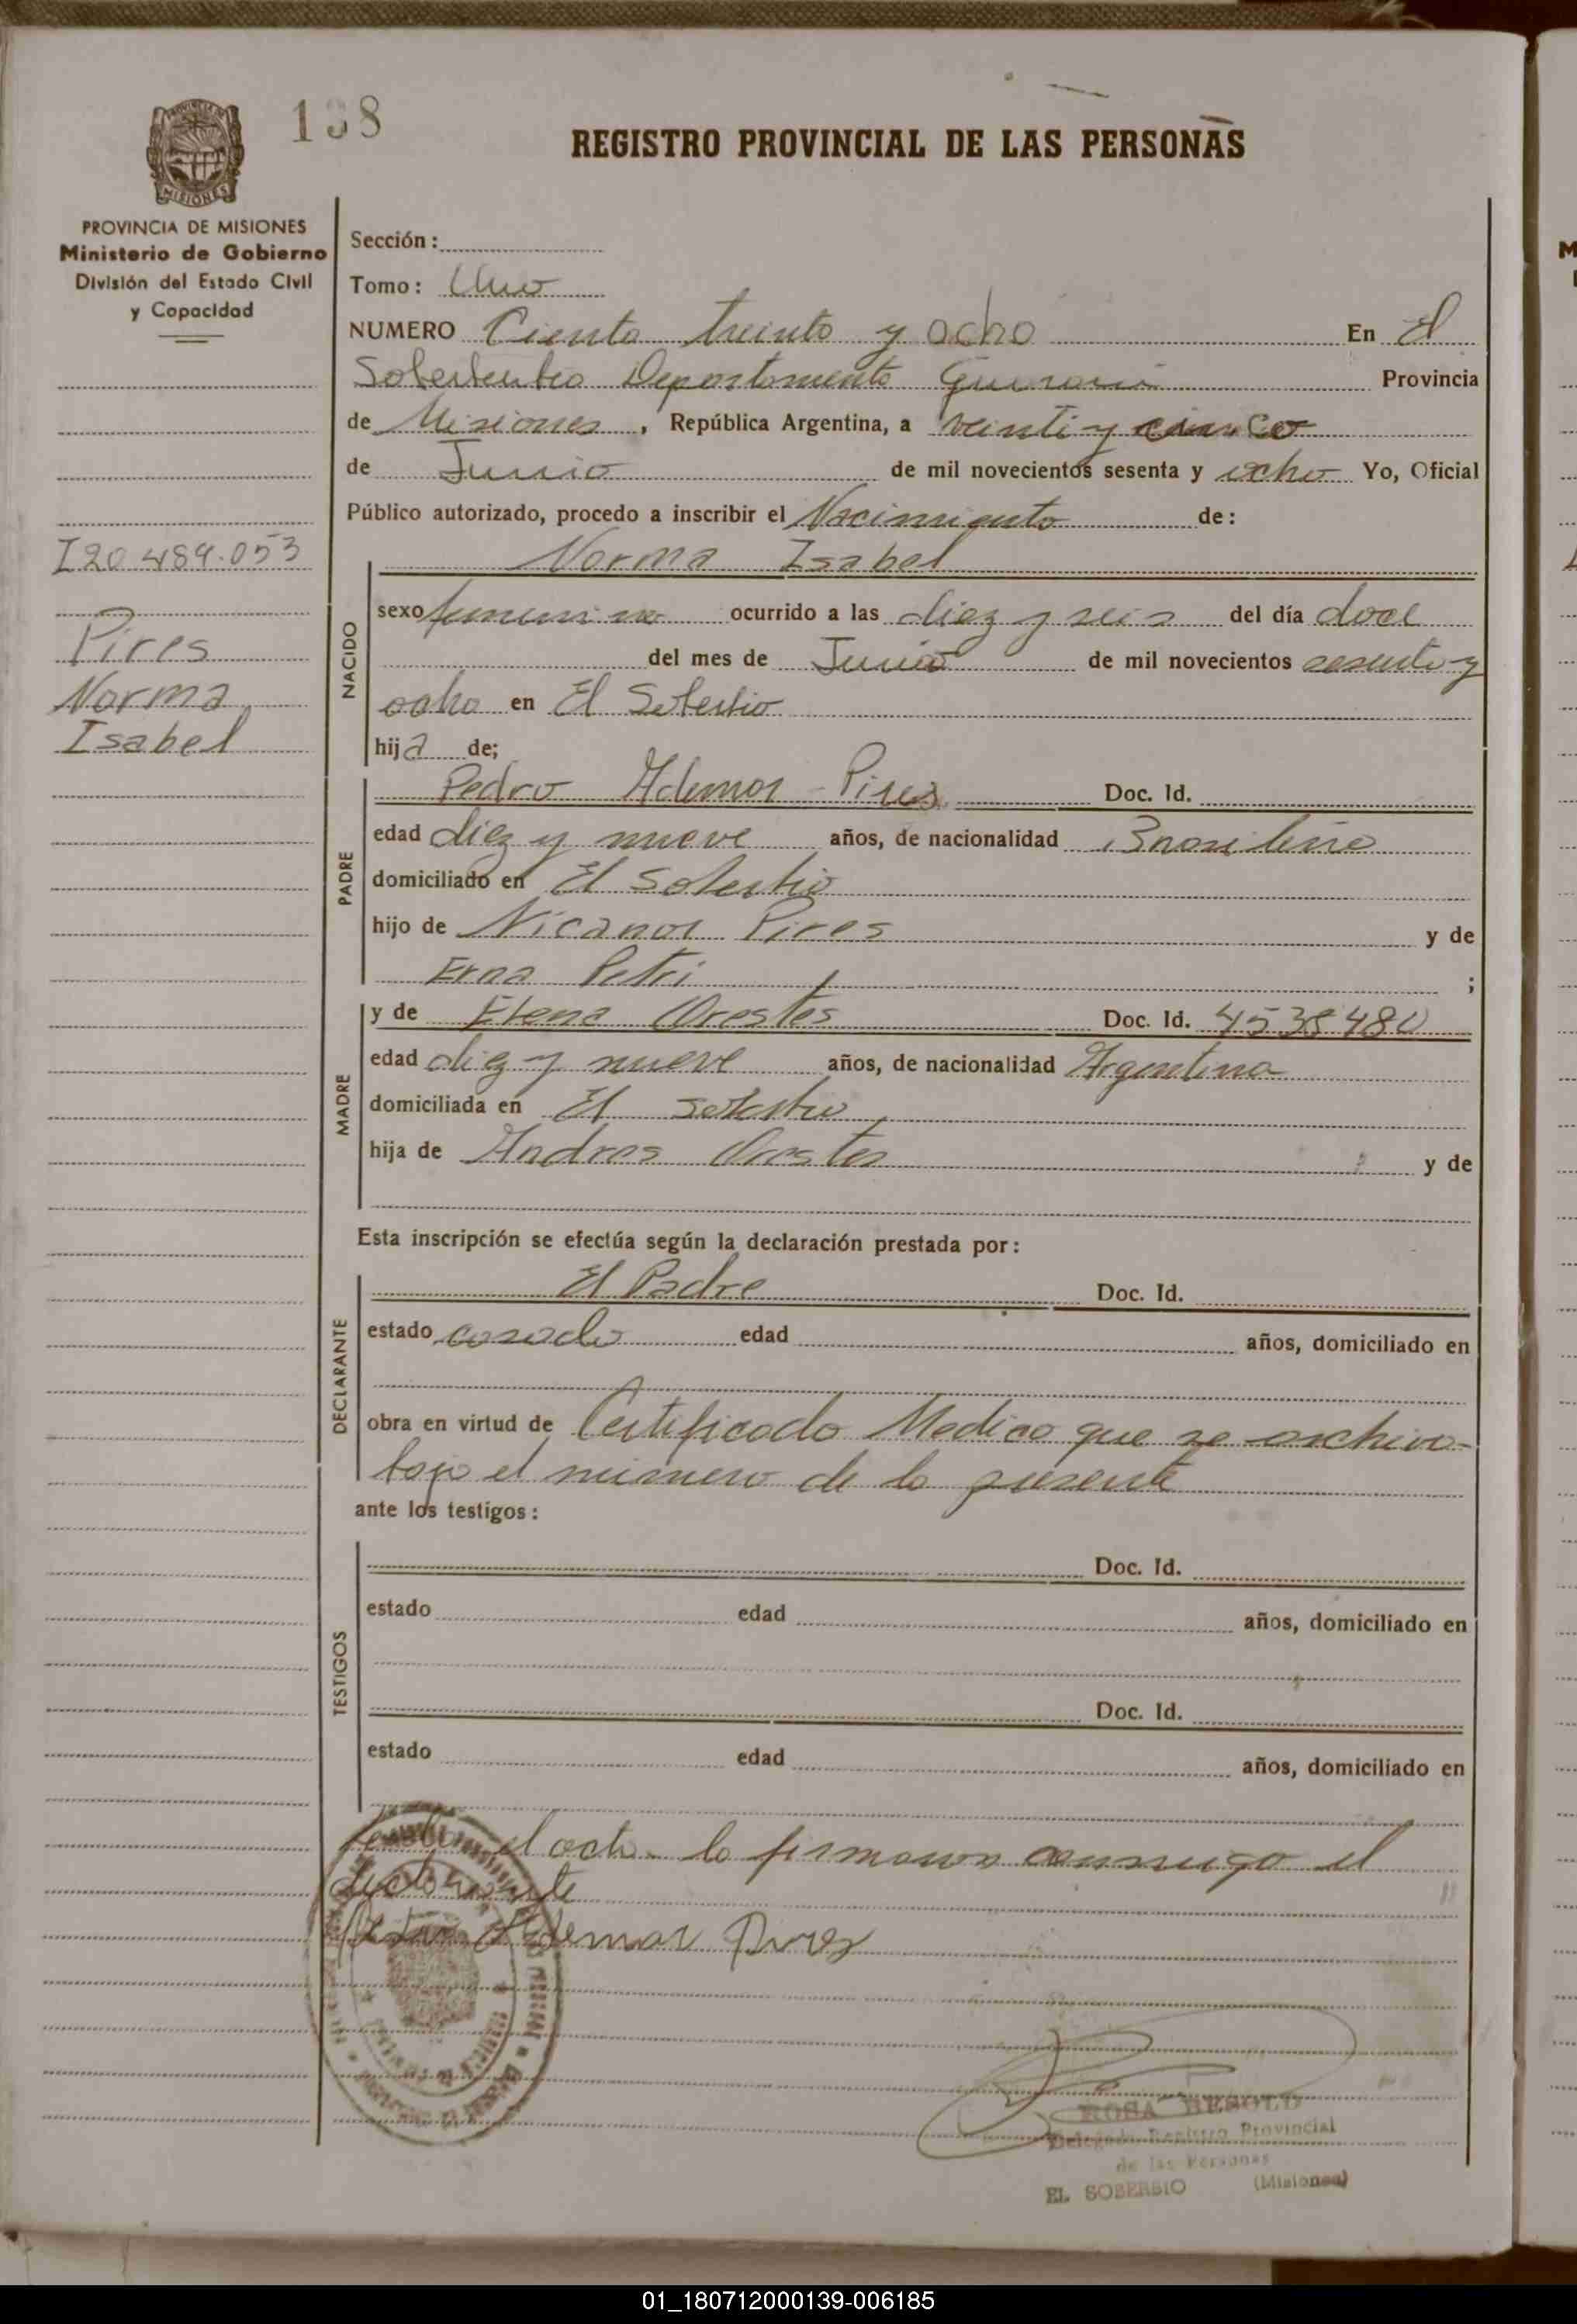 138
REGISTRO PROVINCIAL DE LAS PERSONAS
MISIONES
PROVINCIA DE MISIONES
Ministerio de Gobierno
División del Estado Civil
y Capacidad
I 20.489.053
Pires
Norma
Isabel
Sección:
Tomo: Uno
NUMERO Ciento treinta y ocho En El
Departamento Guaraní Provincia
de Misiones, República Argentina, a veinti y cinco
de Junio de mil novecientos sesenta y ocho Yo, Oficial
Público autorizado, procedo a inscribir el Nacimiento de:
Norma Isabel
NACIDO
sexo femenino ocurrido a las diez y seis del día doce
del mes de Junio de mil novecientos sesenta y
ocho en El Soberbio
hija de;
PADRE
Pedro Ademar Pires Doc. Id.
edad diez y nueve años, de nacionalidad Brasileño
domiciliado en El Soberbio
hijo de Nicanor Pires y de
Erna Petri ;
MADRE
y de Elena Orestes Doc. Id. 4538480
edad diez y nueve años, de nacionalidad Argentina
domiciliada en El Soberbio
hija de Andres Orestes y de
Esta inscripción se efectúa según la declaración prestada por:
DECLARANTE
El Padre Doc. Id.
estado casado edad años, domiciliado en
obra en virtud de Certificado Medico que se archiva
bajo el número de la presente
ante los testigos:
TESTIGOS
Doc. Id.
estado edad años, domiciliado en
Doc. Id.
estado edad años, domiciliado en
el acta la firmamos conmigo el
declarante
Ademar Pires
ROSA
Delegada Registro Provincial
de las Personas
EL SOBERBIO (Misiones)
01_180712000139-006185